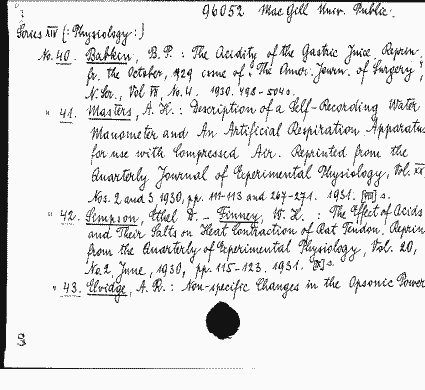 96052 Mac Gill Univ. Public.
Series XIV (: Physiology :)
No. 40. Babkin, B. P. : The Acidity of the Gastric Juice Reprin.
fr. the October, 1929 issue of "The Amer. Journ. of Surgery",
N. Ser., Vol VII No. 4. 1930. 498-504 s.
" 41. Masters, A. H. : Description of a Self-Recording Water
Manometer and An Artificial Respiration Apparatus
for use with Compressed Air. Reprinted from the
Quarterly Journal of Experimental Physiology, Vol. XX,
Nos. 2 and 3 1930, pp. 111-113 and 267-271. 1931. [VIII] s.
" 42. Simpson, Ethel D. - Finney, W. H. : The Effect of Acids
and Their Salts on Heat Contraction of Rat Tendon. Reprin
from the Quarterly of Experimental Physiology, Vol. 20,
No. 2, June, 1930, pp. 115-123. 1931. s.
" 43. Elvidge, A. R. : Non-specific Changes in the Opsonic Power